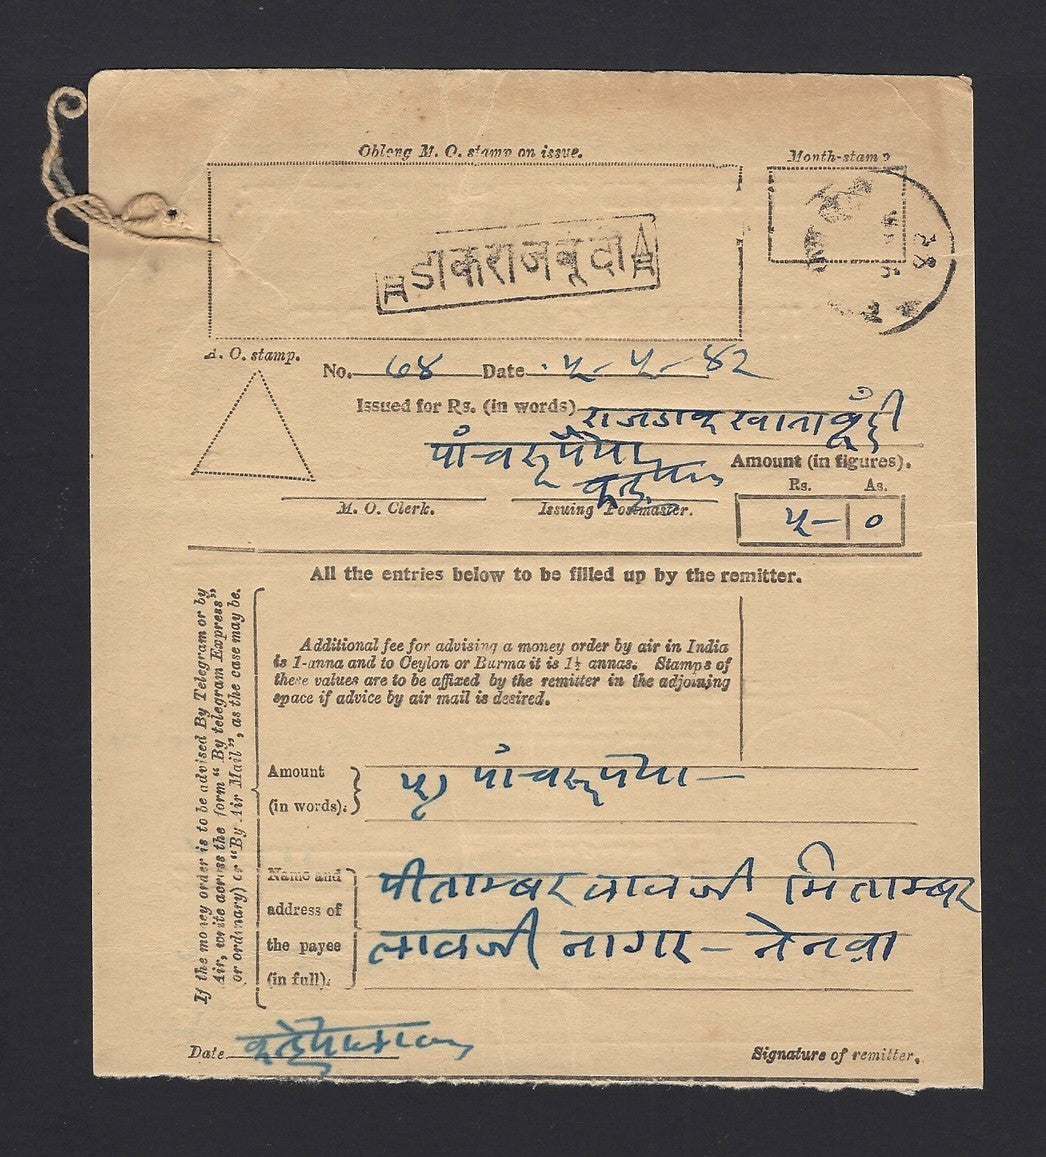 Oblong M. O. stamp on issue.
Month-stamp
डाकराजबूंदी
A. O. stamp.
No. 68 Date ५-५-82
Issued for Rs. (in words) राजडाक खाता बूँदी
पांच रूपैया
Amount (in figures).
Rs. As.
५- 0
M. O. Clerk. Issuing Postmaster.
All the entries below to be filled up by the remitter.
If the money order is to be advised By Telegram or by
Air, write across the form "By telegram Express"
or ordinary) or "By Air Mail", as the case may be.
Additional fee for advising a money order by air in India
is 1-anna and to Ceylon or Burma it is 1½ annas. Stamps of
these values are to be affixed by the remitter in the adjoining
space if advice by air mail is desired.
Amount
(in words).
५) पांच रूपैया —
Name and
address of
the payee
(in full).
पीताम्बर लालजी मिताम्बर
लालजी नागर - नेनवा
Date
Signature of remitter.